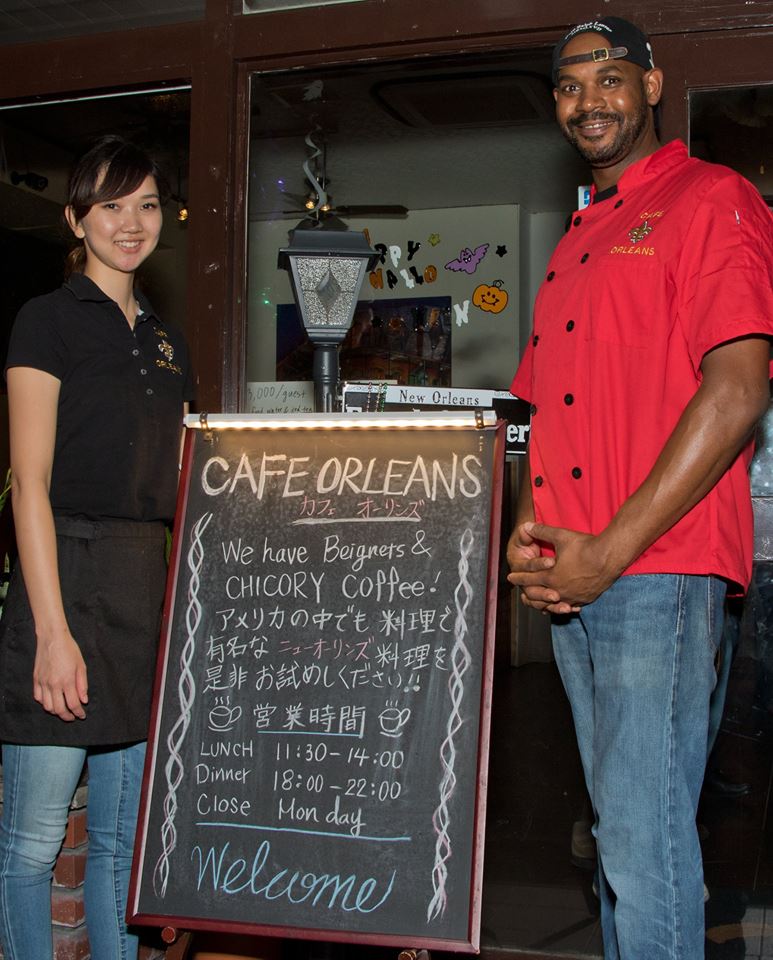 CAFE
ORLEANS
CAFE
ORLEANS
APPY
HALLO
N
3,000/guest
New Orleans
CAFE ORLEANS
カフェ オーリンズ
We have Beigners &
CHICORY Coffee!
アメリカの中でも料理で
有名なニューオーリンズ料理を
是非お試しください!!
営業時間
LUNCH 11:30-14:00
Dinner 18:00-22:00
Close Monday
Welcome